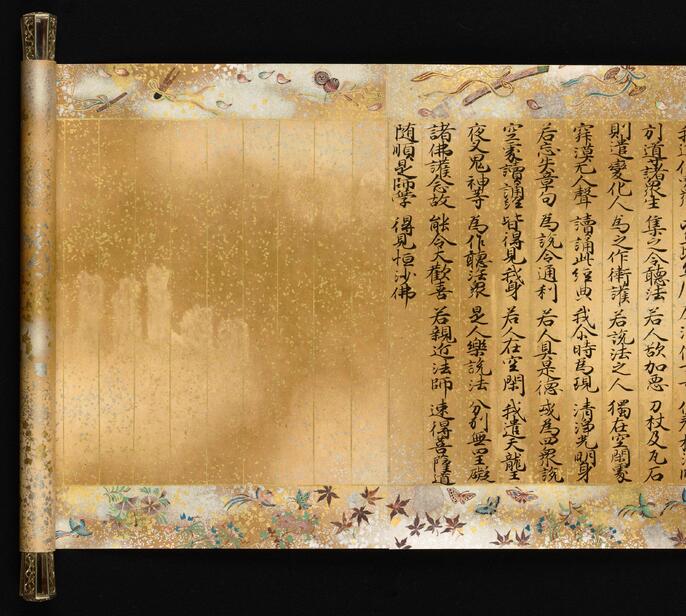 引道諸衆生 集之令聽法 若人欲加惡 刀杖及瓦石
則遣變化人 為之作衛護 若說法之人 獨在空閑處
寂漠无人聲 讀誦此經典 我尒時為現 清淨光明身
若忘失章句 為說令通利 若人具是德 或為四衆說
空處讀誦經 皆得見我身 若人在空閑 我遣天龍王
夜叉鬼神等 為作聽法衆 是人樂說法 分別無罣礙
諸佛護念故 能令大歡喜 若親近法師 速得菩薩道
随順是師學 得見恒沙佛